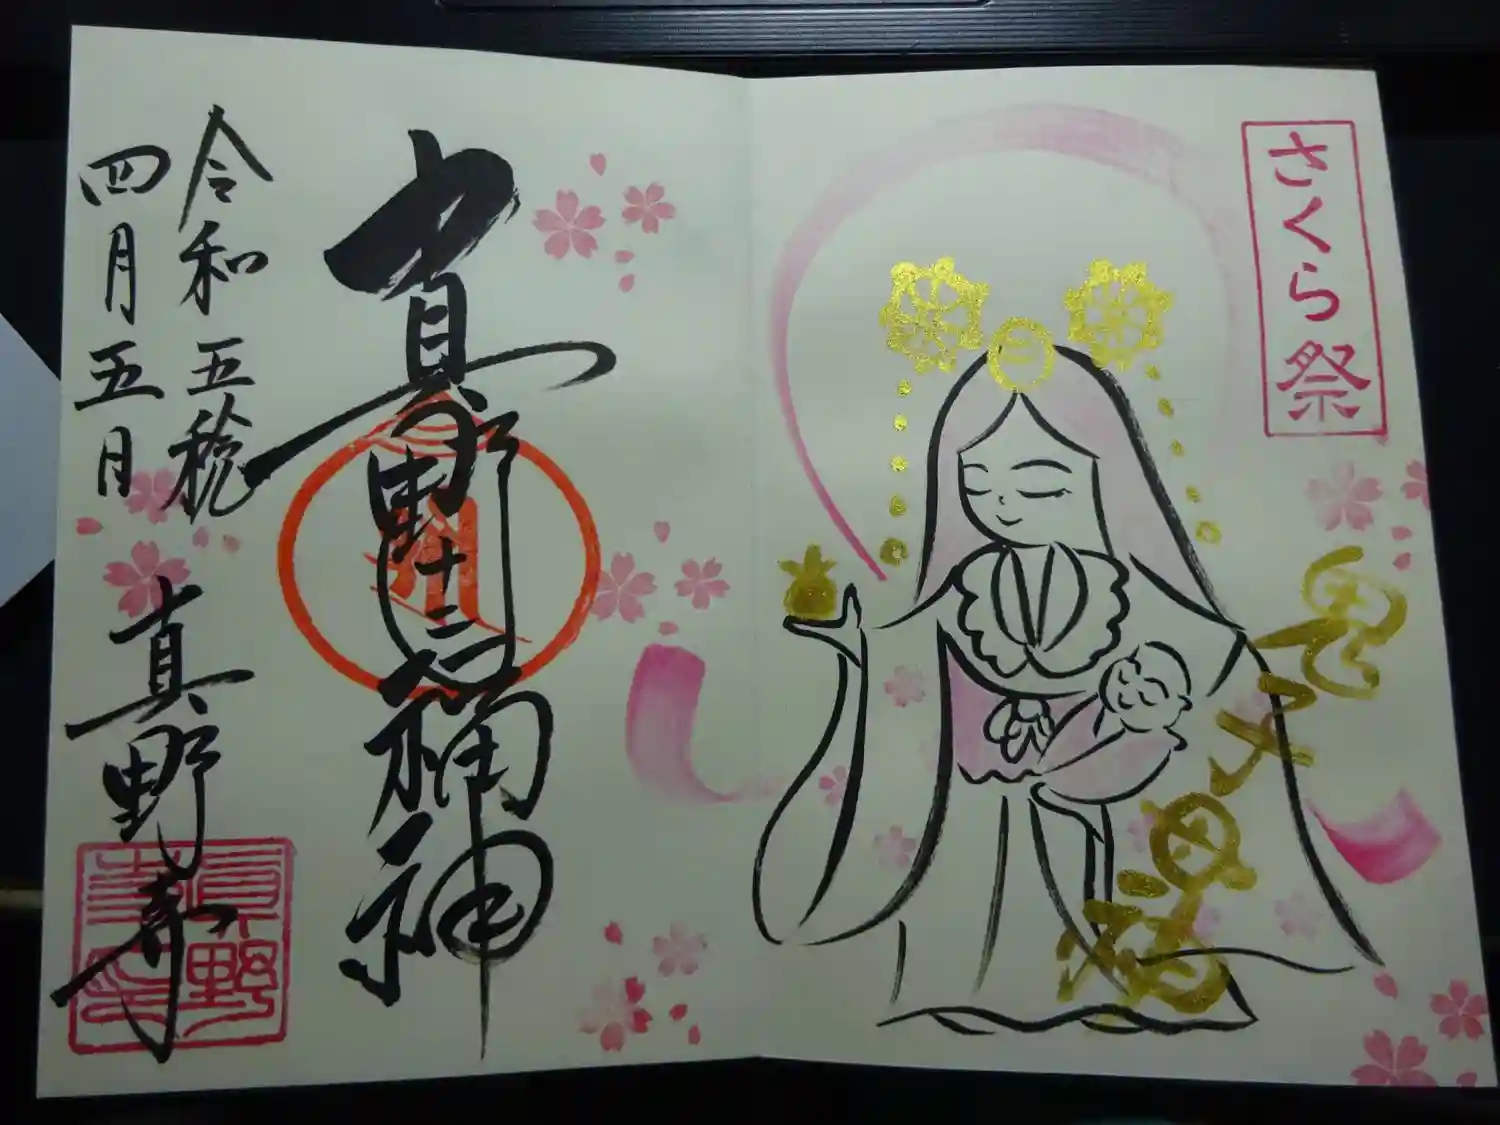 さくら祭
鬼子母神
真野十二橋神
令和五稔
四月五日
真野寺